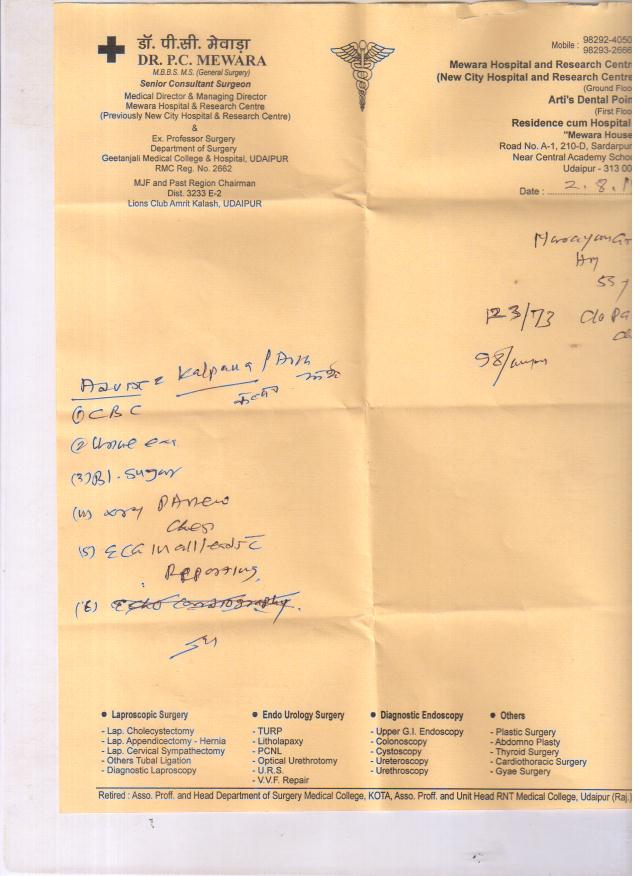 डॉ. पी.सी. मेवाड़ा
DR. P.C. MEWARA
M.B.B.S. M.S. (General Surgery)
Senior Consultant Surgeon
Medical Director & Managing Director
Mewara Hospital & Research Centre
(Previously New City Hospital & Research Centre)
&
Ex. Professor Surgery
Department of Surgery
Geetanjali Medical College & Hospital, UDAIPUR
RMC Reg. No. 2662
MJF and Past Region Chairman
Dist. 3233 E-2
Lions Club Amrit Kalash, UDAIPUR
Mobile : 98292-4050
98293-2666
Mewara Hospital and Research Centr
(New City Hospital and Research Centre
(Ground Floo
Arti's Dental Poin
(First Floo
Residence cum Hospital
"Mewara House
Road No. A-1, 210-D, Sardarpur
Near Central Academy Schoo
Udaipur - 313 00
Date : 2.8.1
55 y
123/73 C/o Pa
98/
Kalpana /
(1) CBC
(2) Urine
(3) Bl. Sugar
(4) xray PA view
Chest
(5) ECG in all leads c
Reporting
(6)
• Laproscopic Surgery
- Lap. Cholecystectomy
- Lap. Appendicectomy - Hernia
- Lap. Cervical Sympathectomy
- Others Tubal Ligation
- Diagnostic Laproscopy
• Endo Urology Surgery
- TURP
- Litholapaxy
- PCNL
- Optical Urethrotomy
- U.R.S.
- V.V.F. Repair
• Diagnostic Endoscopy
- Upper G.I. Endoscopy
- Colonoscopy
- Cystoscopy
- Ureteroscopy
- Urethroscopy
• Others
- Plastic Surgery
- Abdomno Plasty
- Thyroid Surgery
- Cardiothoracic Surgery
- Gyae Surgery
Retired : Asso. Proff. and Head Department of Surgery Medical College, KOTA, Asso. Proff. and Unit Head RNT Medical College, Udaipur (Raj.)